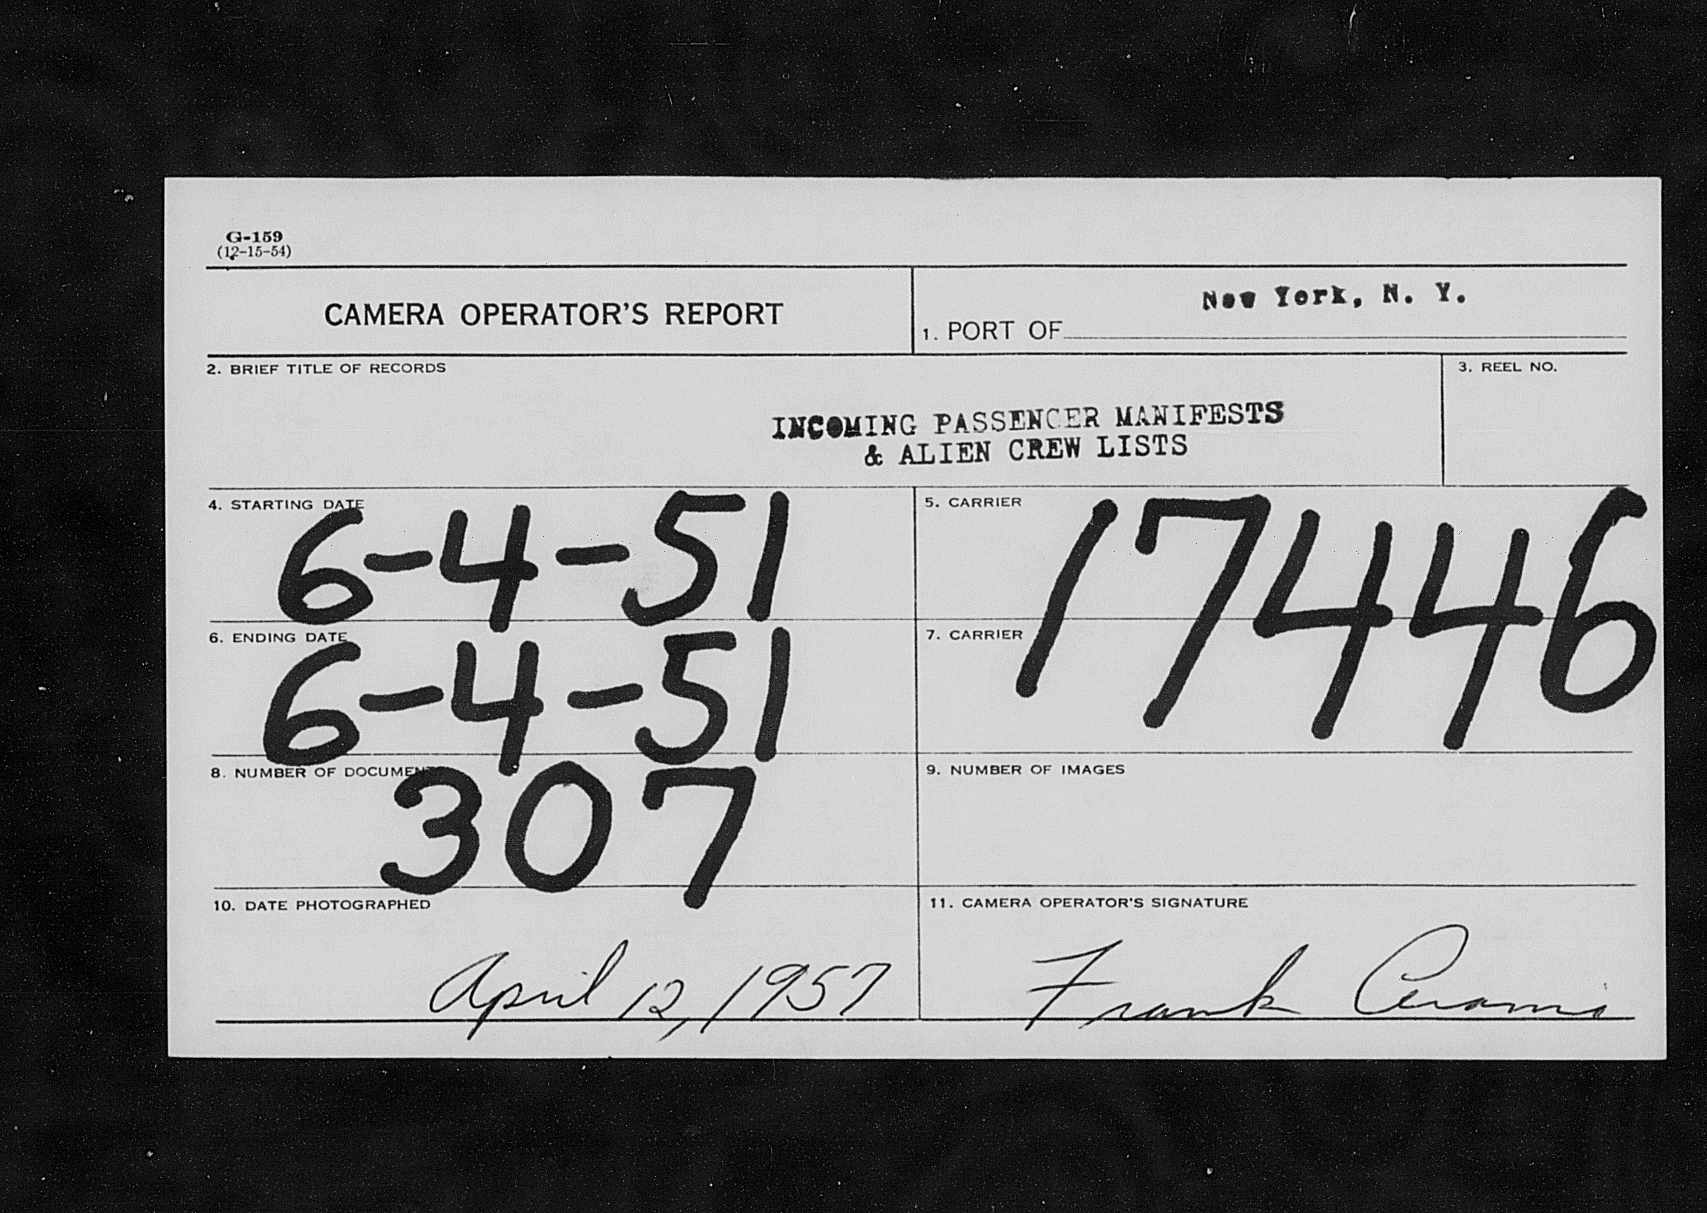 G-159
(12-15-54)
CAMERA OPERATOR'S REPORT
1. PORT OF New York, N. Y.
2. BRIEF TITLE OF RECORDS
3. REEL NO.
INCOMING PASSENGER MANIFESTS
& ALIEN CREW LISTS
4. STARTING DATE
6-4-51
5. CARRIER
17446
6. ENDING DATE
6-4-51
7. CARRIER
8. NUMBER OF DOCUMENTS
307
9. NUMBER OF IMAGES
10. DATE PHOTOGRAPHED
April 12, 1957
11. CAMERA OPERATOR'S SIGNATURE
Frank